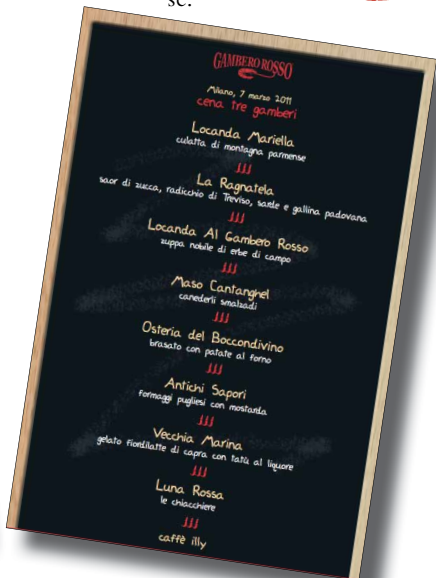 se.
GAMBERO ROSSO
Milano, 7 marzo 2011
cena tre gamberi
Locanda Mariella
culatta di montagna parmense
La Ragnatela
saor di zucca, radicchio di Treviso, sarde e gallina padovana
Locanda Al Gambero Rosso
zuppa nobile di erbe di campo
Maso Cantanghel
canederli smalzadi
Osteria del Boccondivino
brasato con patate al forno
Antichi Sapori
formaggi pugliesi con mostarda
Vecchia Marina
gelato fiordilatte di capra con tatù al liquore
Luna Rossa
le chiacchiere
caffè illy